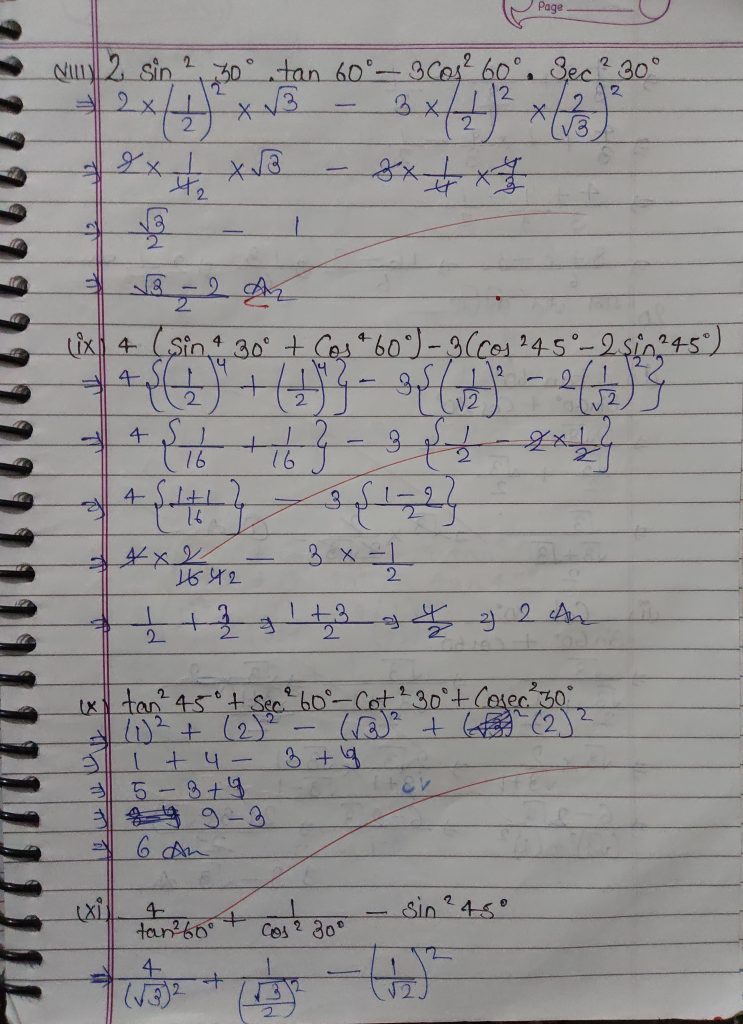 Page
(VIII) 2 sin² 30° . tan 60° – 3 Cos² 60° . Sec² 30°
⇒ 2 × (1/2)² × √3 – 3 × (1/2)² × (2/√3)²
⇒ 2 × 1/4 2 × √3 – 3 × 1/4 × 4/3
⇒ √3/2 – 1
⇒ √3 – 2/2 An
(ix) 4 (Sin⁴ 30° + Cos⁴ 60°) – 3 (Cos² 45° – 2 Sin² 45°)
⇒ 4 {(1/2)⁴ + (1/2)⁴} – 3 {(1/√2)² – 2 (1/√2)²}
⇒ 4 {1/16 + 1/16} – 3 {1/2 – 2 × 1/2}
⇒ 4 {1+1/16} – 3 {1–2/2}
⇒ 4 × 2/16 4 2 – 3 × –1/2
⇒ 1/2 + 3/2 ⇒ 1+3/2 ⇒ 4/2 ⇒ 2 An
(x) tan² 45° + Sec² 60° – Cot² 30° + Cosec² 30°
⇒ (1)² + (2)² – (√3)² + (2)²
⇒ 1 + 4 – 3 + 4
⇒ 5 – 3 + 4
⇒ 9 – 3
⇒ 6 An
(xi) 4/tan² 60° + 1/Cos² 30° – Sin² 45°
⇒ 4/(√3)² + 1/(√3/2)² – (1/√2)²